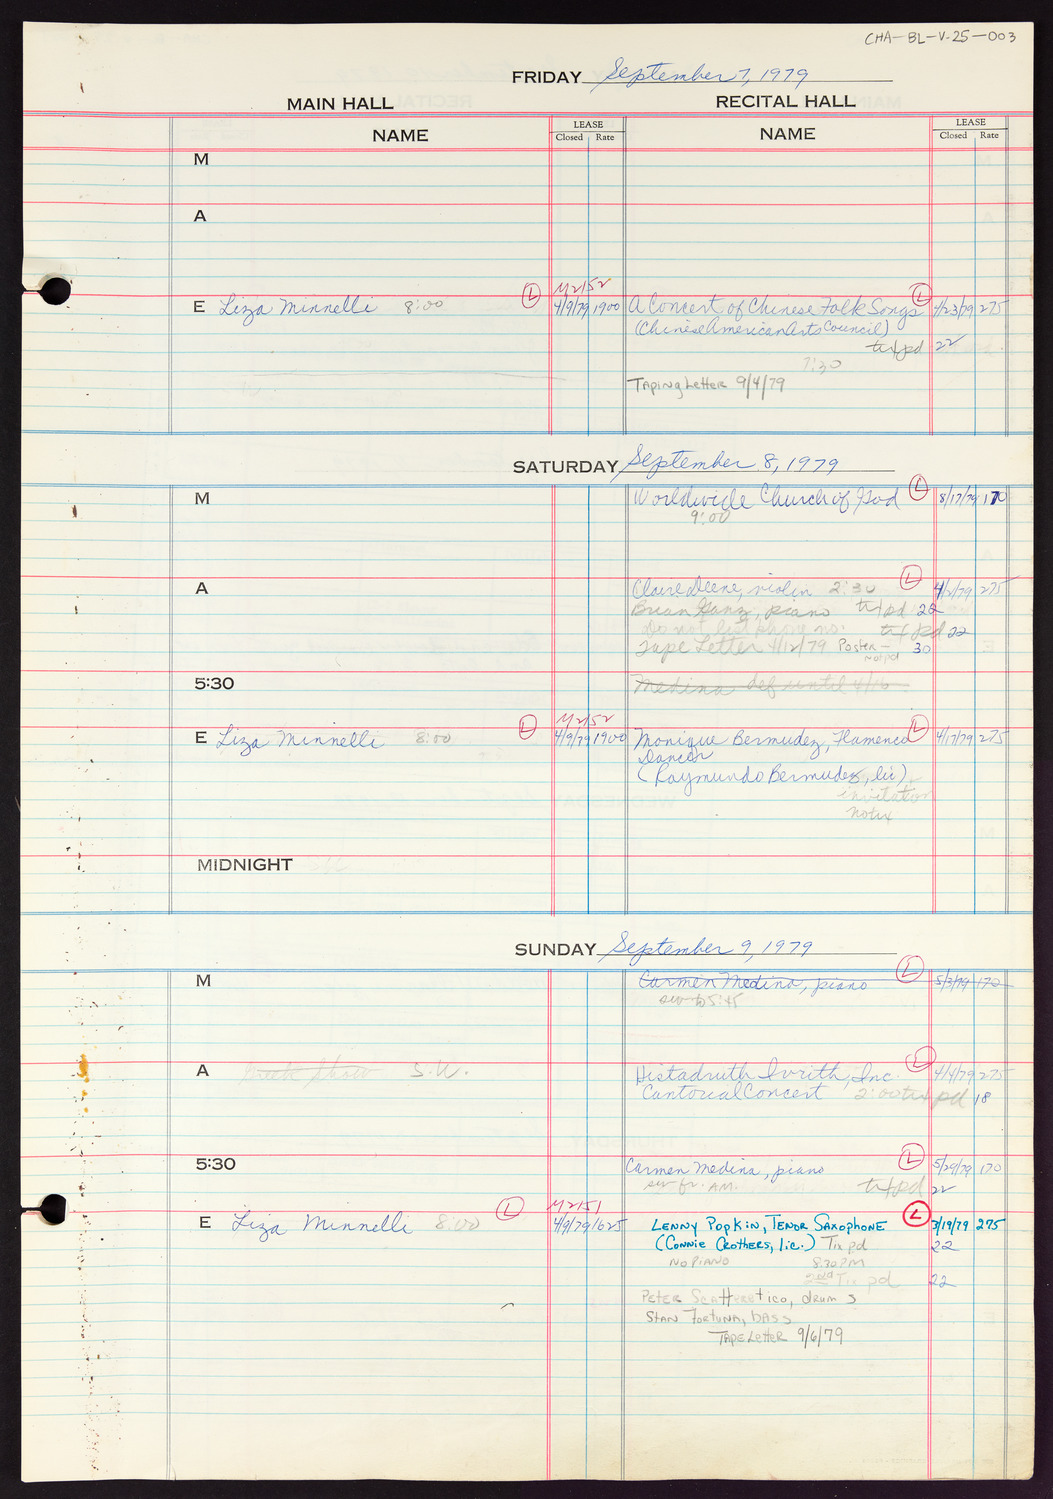 CHA-BL-V-25-003
FRIDAY September 7, 1979
MAIN HALL RECITAL HALL
NAME LEASE Closed Rate NAME LEASE Closed Rate
M
A
M2152
E Liza Minnelli 8:00 L 4/9/79 1900 A Concert of Chinese Folk Songs L 4/23/79 275
(Chinese American Arts Council)
tix pd 22
7:30
Taping Letter 9/4/79
SATURDAY September 8, 1979
M Worldwide Church of God L 8/17/79 170
9:00
A Claire Deene, violin 2:30 L 4/2/79 275
Brian Ganz, piano tix pd 22
Do not list phone no. tix pd 22
Tape Letter 4/12/79 Poster - not pd 30
5:30 Medina def until 4/16
M2152
E Liza Minnelli 8:00 L 4/9/79 1900 Monique Bermudez, Flamenco L 4/17/79 275
Dancer
(Raymundo Bermudez, lic)
invitation
notix
MIDNIGHT
SUNDAY September 9, 1979
M Carmen Medina, piano L 5/3/79 170
sw to 5:45
A S.W. Histadruth Ivrith, Inc. L 4/4/79 275
Cantorial Concert 2:00 tix pd 18
5:30 Carmen Medina, piano L 5/29/79 170
sw fr. AM. tix pd 22
M2151
E Liza Minnelli 8:00 L 4/9/79 1625 Lenny Popkin, Tenor Saxophone L 3/19/79 275
(Connie Crothers, lic.) Tix pd 22
No Piano 8:30 PM
2nd Tix pd 22
Peter Scattaretico, drums
Stan Fortuna, bass
Tape Letter 9/6/79